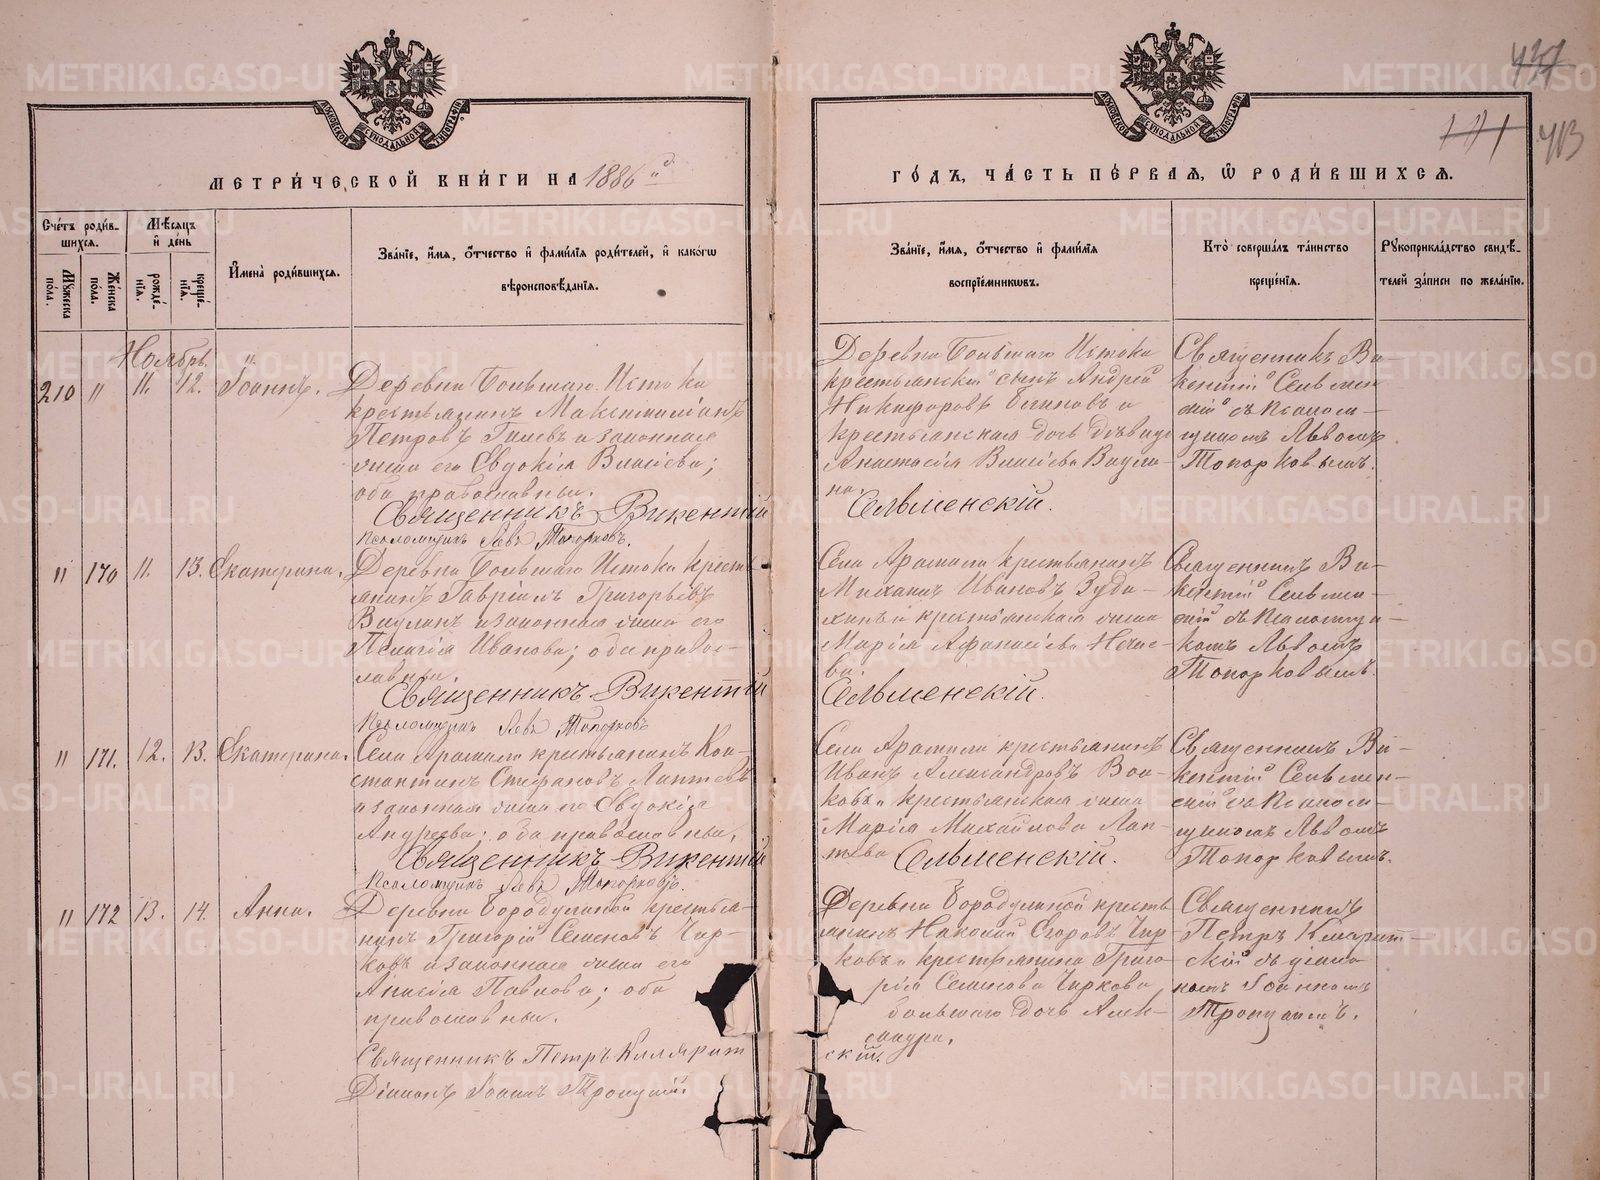 437
171 413
МЕТРИ́ЧЕСКОЙ КНИ́ГИ НА 1886й
ГО́ДЪ, ЧА́СТЬ ПЕ́РВАЯ, Ѿ РОДИ́ВШИХСЯ.
Сче́тъ роди́в-
шихся.
Му́жеска по́ла.
Же́нска по́ла.
Мѣ́сяцъ и҆ де́нь
рожде́нїя.
креще́нїя.
И҆мена̀ роди́вшихся.
Зва́нїе, и҆́мя, ѻ҆́тчество и҆ фами́лїя роди́телей, и҆ како́гѡ
вѣроисповѣ́данїя.
Зва́нїе, и҆́мя, ѻ҆́тчество и҆ фами́лїя
воспрїе́мниковъ.
Кто̀ соверша́лъ та́инство
креще́нїя.
Рꙋкоприкла́дство свидѣ́-
телей за́писи по жела́нїю.
Ноябрь.
210 " 11. 12. Іоаннъ.
Деревни Большаго Истока
крестьянинъ Максимиліанъ
Петровъ Гилевъ и законная
жена его Евдокія Власіева;
оба православны.
Священникъ Викентій Сельменскій.
Псаломщикъ Левъ Топорковъ.
Деревни Большаго Истока
крестьянскій сынъ Андрей
Никифоровъ и
крестьянская дочь дѣвица
Анастасія Власіева
Священникъ Ви-
кентій Сельмен-
скій съ псалом-
щикомъ Львомъ
Топорковымъ.
" 170 11. 13. Екатерина.
Деревни Большаго Истока кресть-
янинъ Гавріилъ Григорьевъ
и законная жена его
Пелагія Иванова; оба право-
славны.
Священникъ Викентій Сельменскій.
Псаломщикъ Левъ Топорковъ
Села Арамили крестьянинъ
Михаилъ Ивановъ Зуди-
хинъ и крестьянская жена
Марія Афанасіева
Священникъ Ви-
кентій Сельмен-
скій съ псаломщи-
комъ Львомъ
Топорковымъ.
" 171. 12. 13. Екатерина.
Села Арамили крестьянинъ Кон-
стантинъ Стефановъ Лаптевъ
и законная жена его Евдокія
Андреева; оба православны.
Священникъ Викентій Сельменскій.
Псаломщикъ Левъ Топорковъ.
Села Арамили крестьянинъ
Иванъ Александровъ Вол-
ковъ и крестьянская жена
Марія Михайлова Лап-
тева
Священникъ Ви-
кентій Сельмен-
скій съ псалом-
щикомъ Львомъ
Топорковымъ.
" 172 13. 14. Анна.
Деревни Бородулиной крестья-
нинъ Григорій Семеновъ Чир-
ковъ и законная жена его
Анисія Павлова; оба
православны.
Священникъ Петръ
скій.
Діаконъ Іоаннъ Троицкій.
Деревни Бородулиной кресть-
янинъ Николай Егоровъ Чир-
ковъ и крестьянина Григо-
рія Семенова Чиркова
большаго дочь Алек-
сандра.
Священникъ
Петръ
скій съ діако-
номъ Іоанномъ
Троицкимъ.
METRIKI.GASO-URAL.RU